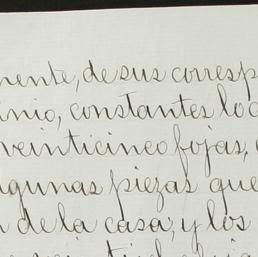 mente, de sus corresp
inio, constantes lo
veinticinco fojas,
algunas piezas que
de la casa, y los